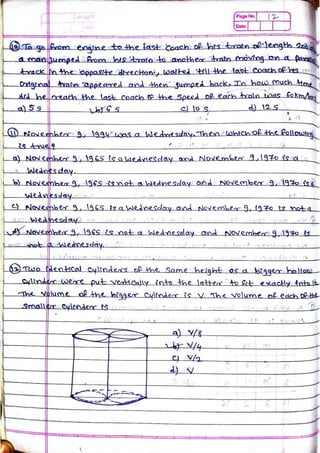 Page No. 12
Date
(10) To go from engine to the last coach of his train of length
a man jumped from his train to another train moving on a
track in the opposite direction, waited till the last coach of his
original train appeared and then jumped back. In how much time
did he reach the last coach if the speed of each train was 60 km/hr
a) 5 s b) 6 s c) 10 s d) 12 s
(11) November 9, 1994 was a Wednesday. Then which of the following
is true?
a) November 9, 1965 is a wednesday and November 9, 1970 is a
Wednesday.
b) November 9, 1965 is not a wednesday and November 9, 1970 is a
Wednesday.
c) November 9, 1965 is a Wednesday and November 9, 1970 is not a
Wednesday
d) November 9, 1965 is not a Wednesday and November 9, 1970 is
not a Wednesday.
(12) Two identical cylinders of the same height as a bigger hollow
cylinder were put vertically into the latter to fit exactly into it
The volume of the bigger cylinder is V. The volume of each of the
smaller cylinder is
a) V/3
b) V/4
c) V/2
d) V